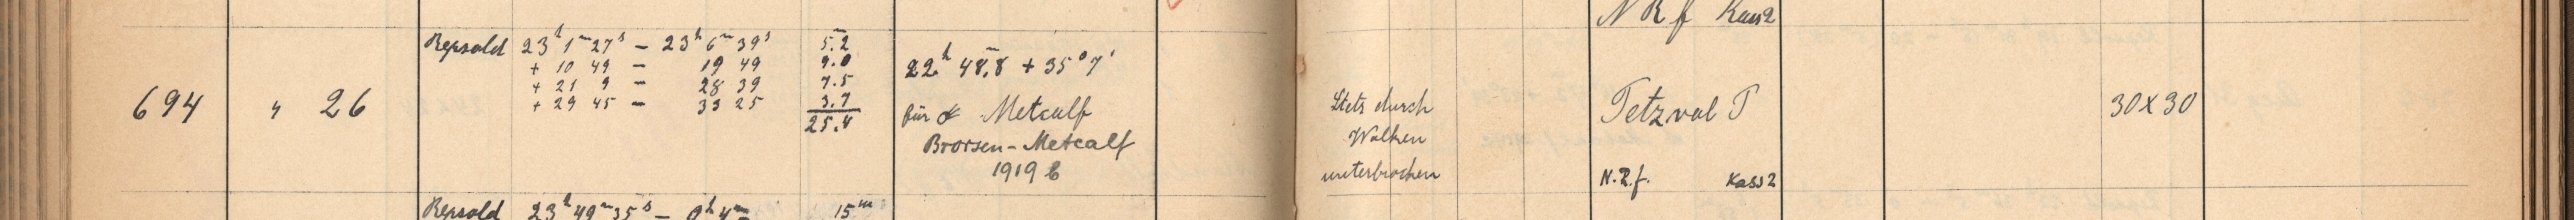 N R f Kass2
Repsold 23h 1m 27s – 23h 6m 39s 5.m2
+ 10 49 – 19 49 9.0
+ 21 9 – 28 39 7.5
+ 29 45 – 33 25 3.7
25.4
694 " 26
22h 48.m8 + 35° 7'
für ☄ Metcalf
Brorsen-Metcalf
1919 b
Stets durch
Wolken
unterbrochen
Petzval P
30X30
N.R.f. Kass2
Repsold 23h 49m 35s – 0h 4m 15m